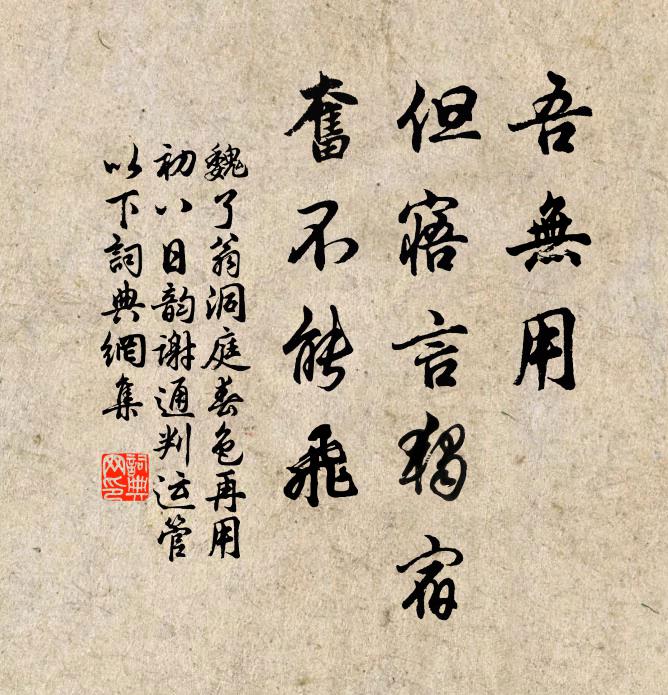 吾無用
但寤言獨宿
奮不能飛
魏了翁洞庭春色再用
初八日韵谢通判运管
以下詞典網集
詞典网印